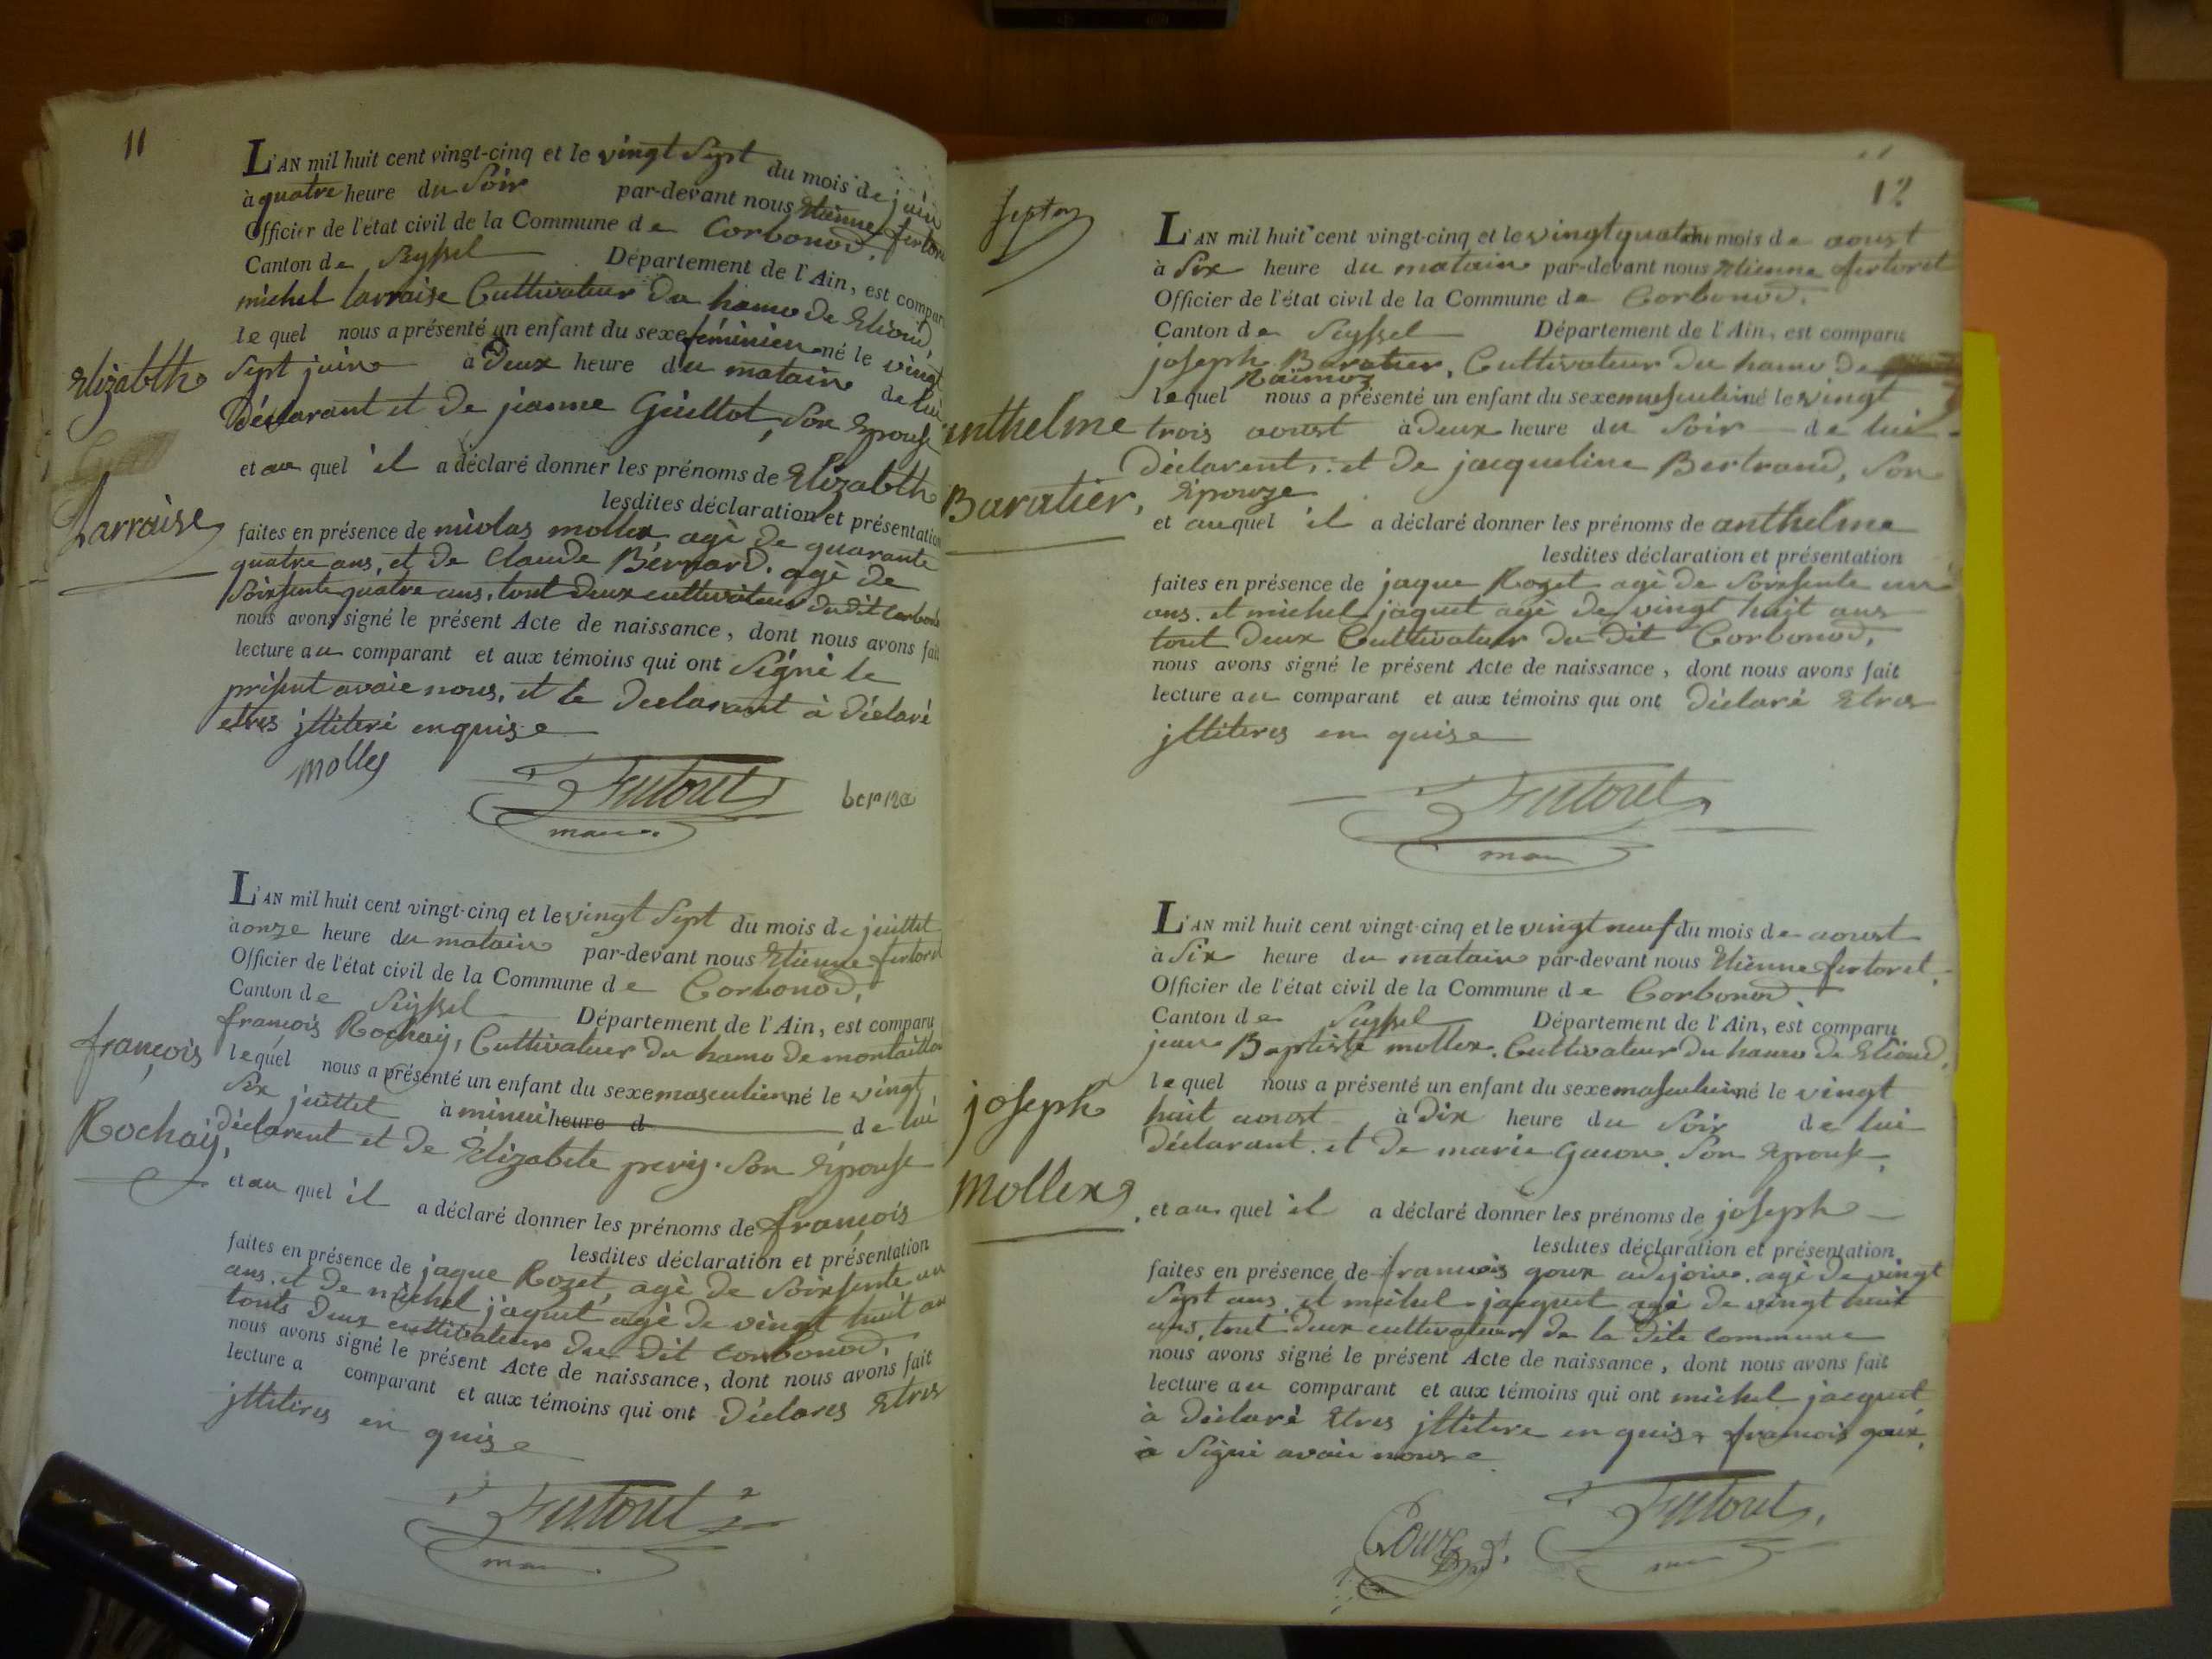 11
L'AN mil huit cent vingt-cinq et le vingt Sept du mois de juin
à quatre heure du Soir par-devant nous Etienne fertoret
Officier de l'état civil de la Commune de Corbonod.
Canton de Seyssel Département de l'Ain, est comparu
michel larraise Cultivateur du hamo de Elioud
lequel nous a présenté un enfant du sexe féminien né le vingt
Elizabth Sept juin à Deux heure du matain de lui
Déclarant et de jeanne Guillot, Son Epouse
et au quel il a déclaré donner les prénoms de Elizabth
Larraise
lesdites déclaration et présentation
faites en présence de nicolas mollex agé de quarante
quatre ans, et de Claude Bernard. agé de
Soixsente quatre ans, tout Deux cultivateur du dit Corbonod
nous avons signé le présent Acte de naissance, dont nous avons fait
lecture au comparant et aux témoins qui ont Signé le
présent avaie nous, et le Déclarant à Déclaré
etres jlliteré enquise
molley
Futoret
maire
L'AN mil huit cent vingt-cinq et le vingt Sept du mois de juillet
à onze heure du matain par-devant nous Etienne fertoret
Officier de l'état civil de la Commune de Corbonod,
Canton de Seyssel Département de l'Ain, est comparu
françois Rochaij, Cultivateur du hamo de montaillou
françois lequel nous a présenté un enfant du sexe masculien né le vingt
Six juillet à minui heure d de lui
Rochaij, déclarent et de Elizabete perry. Son Epouse
et au quel il a déclaré donner les prénoms de françois
lesdites déclaration et présentation
faites en présence de jaque Rozet, agé de Soixsente un
ans. et de michel jaquet agé de vingt huit an
touts Deux cultivateur du dit Corbonod,
nous avons signé le présent Acte de naissance, dont nous avons fait
lecture a comparant et aux témoins qui ont Déclares Etres
jlliteres en quise
Futoret
maire
12
L'AN mil huit cent vingt-cinq et le vingt quatre du mois de aoust
à Six heure du matain par-devant nous Etienne fertoret
Officier de l'état civil de la Commune de Corbonod.
Canton de Seyssel Département de l'Ain, est comparu
joseph Baratier, Cultivateur du hamo de
Raimoz
lequel nous a présenté un enfant du sexe musculiin né le vingt
anthelme trois aoust à Deux heure du Soir de lui
Déclarent, et de jacqueline Bertrand, Son
Baratier, Epouze
et au quel il a déclaré donner les prénoms de anthelme
lesdites déclaration et présentation
faites en présence de jaque Rozet agé de Soixsente un
ans. et michel jaquet agé de vingt huit ans
tout Deux Cultivateur du dit Corbonod,
nous avons signé le présent Acte de naissance, dont nous avons fait
lecture au comparant et aux témoins qui ont Déclaré Etres
jlliteres en quise
Futoret
maire
L'AN mil huit cent vingt-cinq et le vingt neuf du mois de aoust
à Six heure du matain par-devant nous Etienne fertoret
Officier de l'état civil de la Commune de Corbonod.
Canton de Seyssel Département de l'Ain, est comparu
jean Baptiste mollex. Cultivateur du hamo de Elioud,
lequel nous a présenté un enfant du sexe masculiin né le vingt
joseph huit aoust à Dix heure du Soir de lui
Déclarant, et de marie Guion. Son Epouse
mollex,
et au quel il a déclaré donner les prénoms de joseph
lesdites déclaration et présentation
faites en présence de francois goux adejoin. agé de vingt
Sept ans, et michel jacquet agé de vingt huit
ans, tout Deux cultivateur de la Dite commune
nous avons signé le présent Acte de naissance, dont nous avons fait
lecture au comparant et aux témoins qui ont michel jacquet
à Déclaré Etres jllitere en quise francois goux,
à Signé avaie nouse
Goux
Futoret